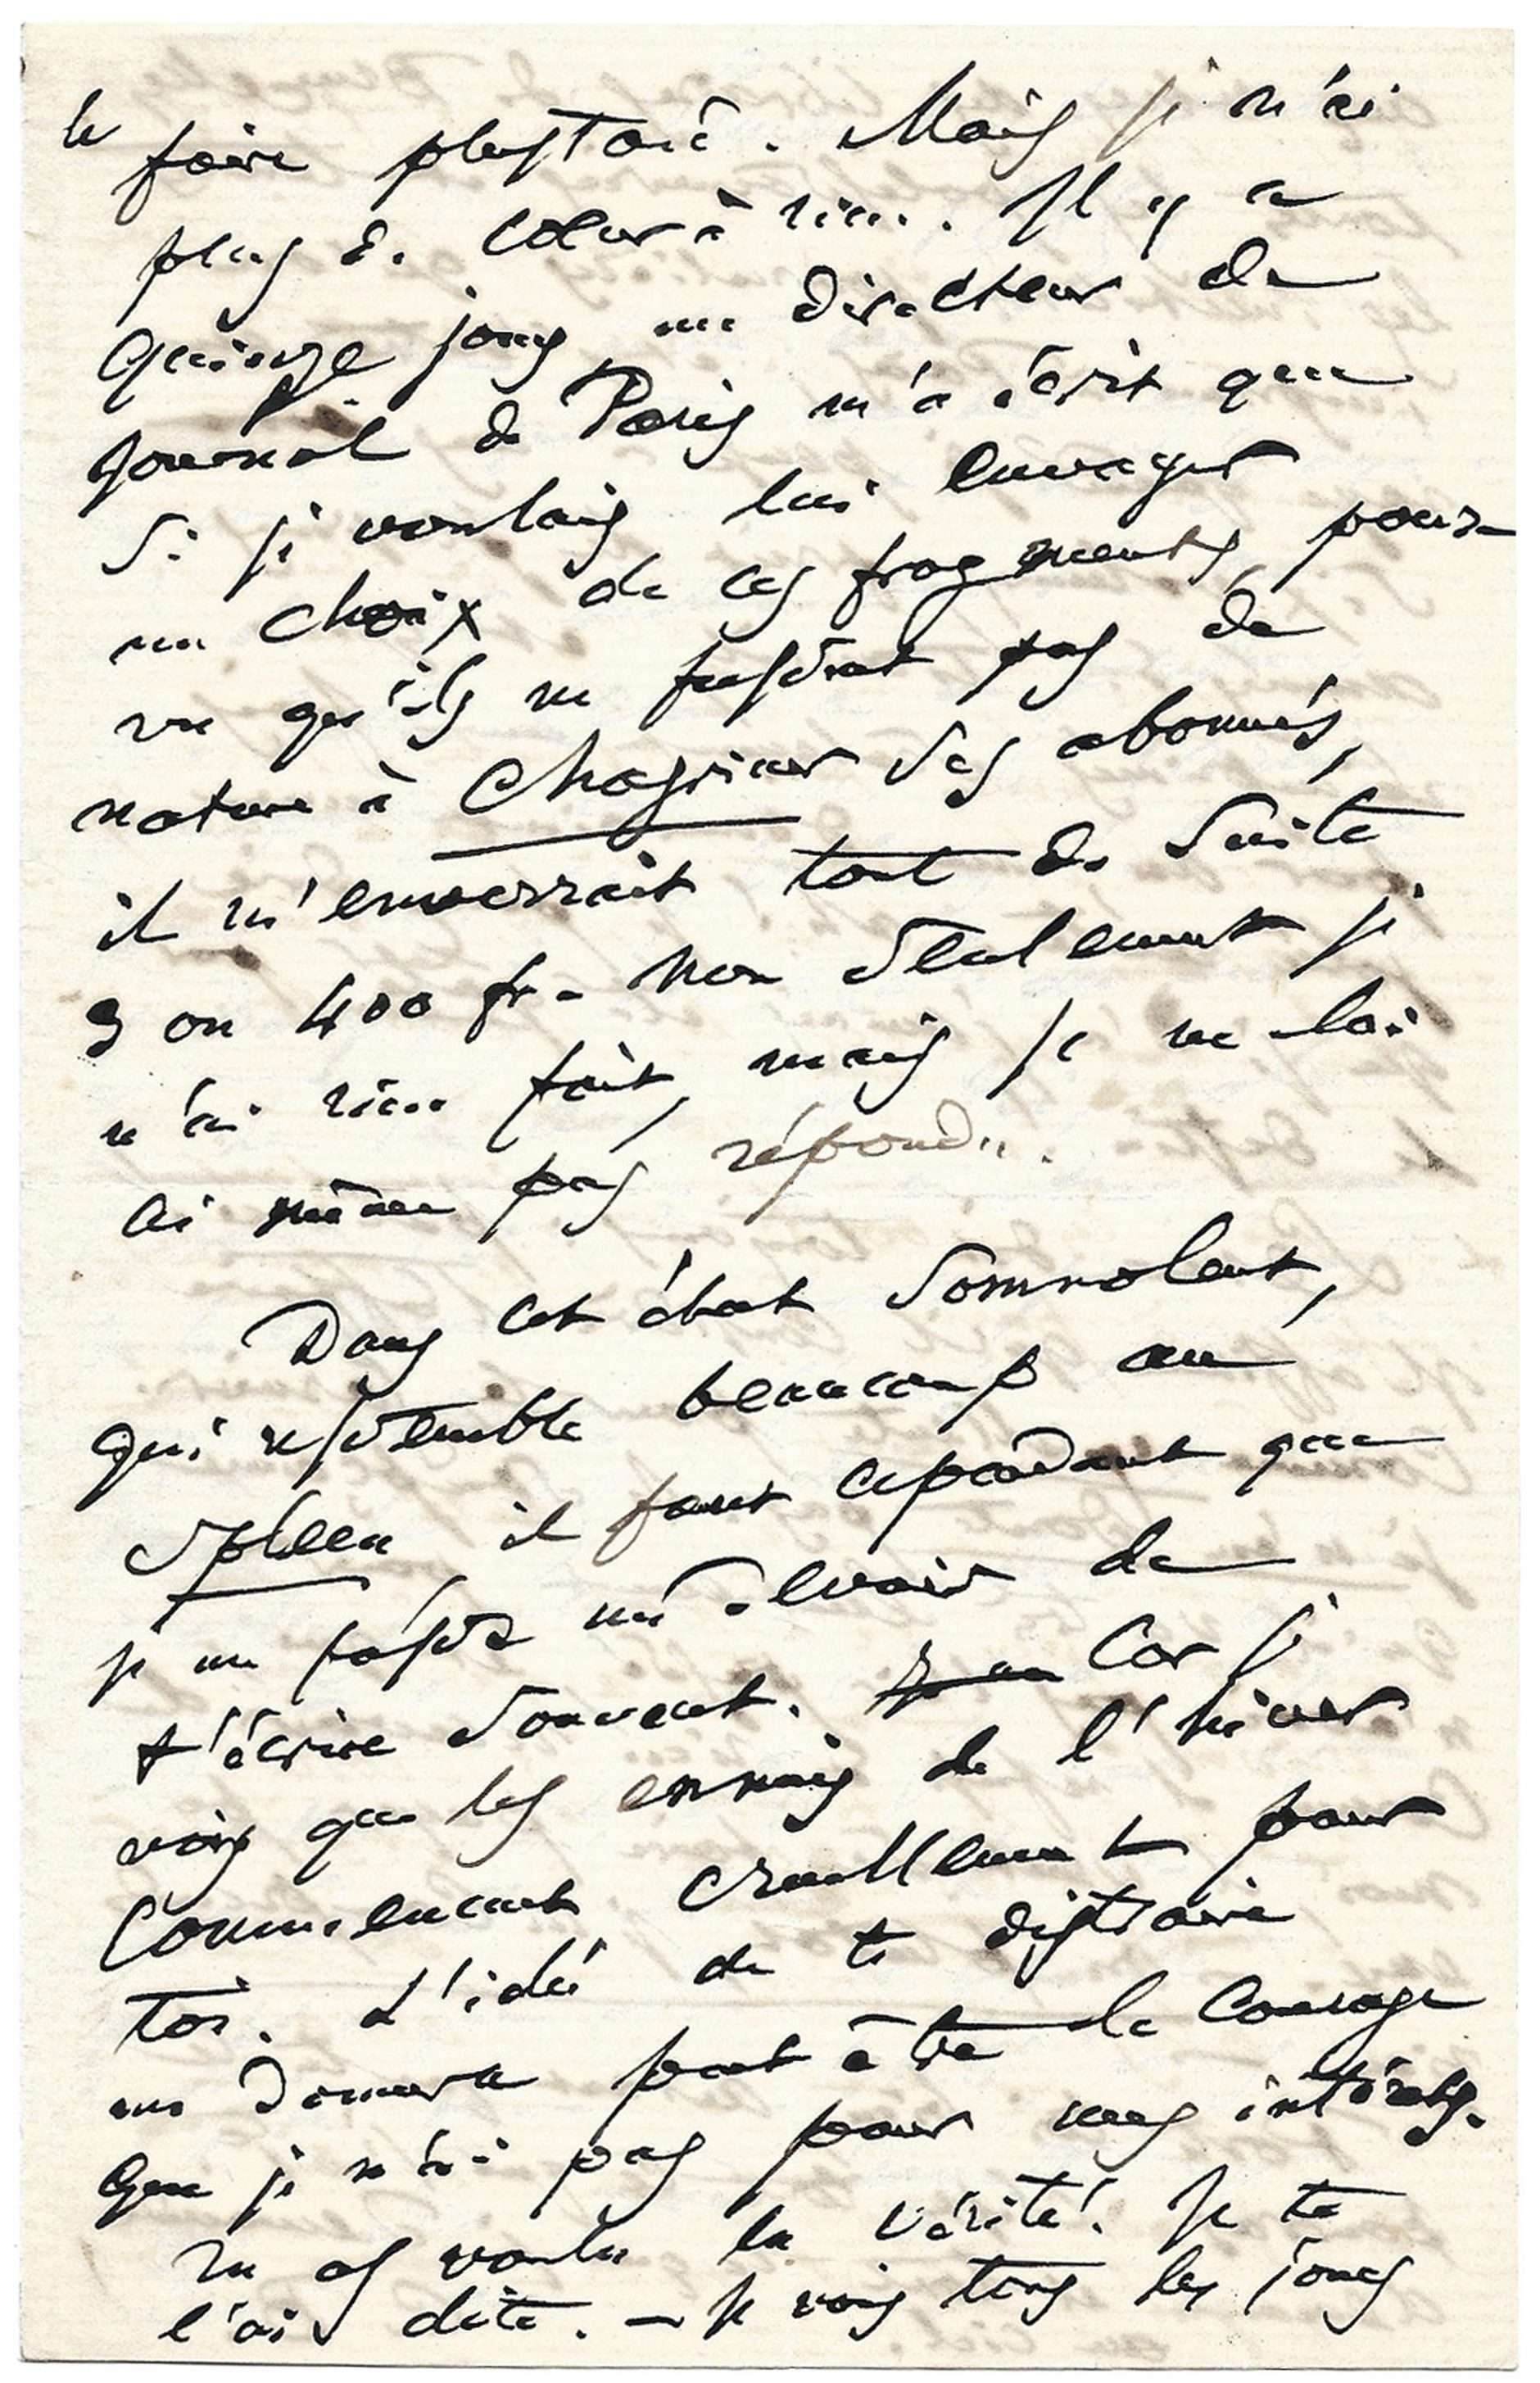 le
faire plustard. Mais je n'ai
plus de cœur à rien. Il y a
Quinze jours un directeur de
Journal de Paris m'a écrit que
si je voulais lui envoyer
un choix de ces fragments pour-
vu qu'ils ne fussent pas de
nature à chagriner ses abonnés,
il m'enverrait tout de suite
3 ou 400 fr. Non seulement je
n'ai rien fait, mais je ne lui
ai même pas répondu.
Dans cet état somnolent,
qui ressemble beaucoup au
spleen, il faut cependant que
je me fasse un devoir de
t'écrire souvent. Car je
vois que les ennuis de l'hiver
commencent cruellement pour
toi. L'idée de te distraire
me donnera peut être le courage
que je n'ai pas pour mes intérêts.
Tu as voulu la vérité. Je te
l'ai dite. — Je vois tous les jours